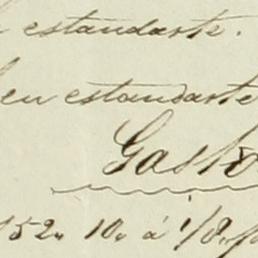 estandarte.
seu estandarte
Gasto
152„ 10„ á 1/8„